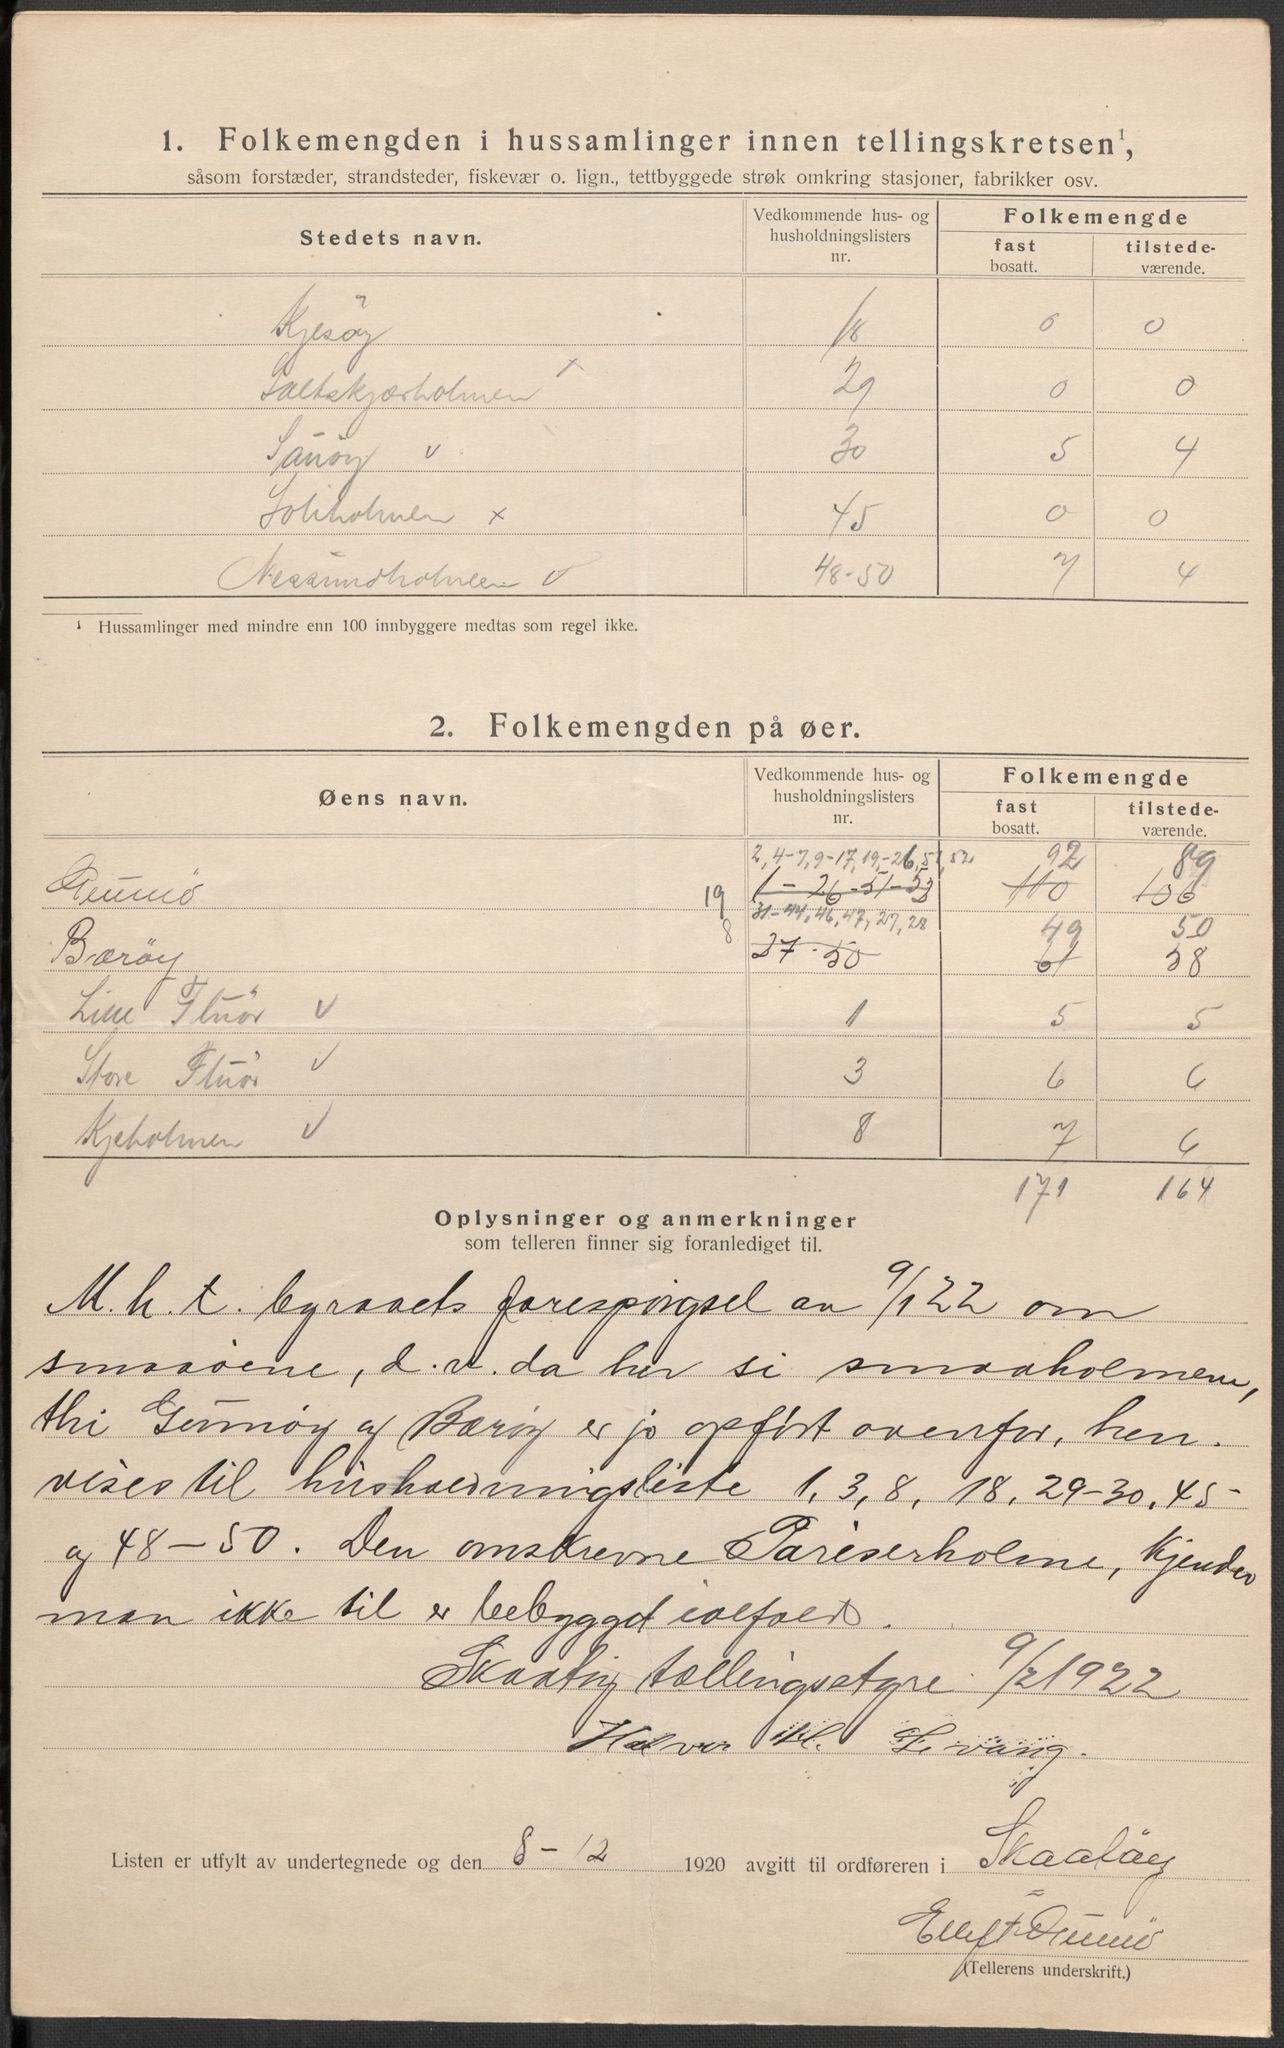 1. Folkemengden i hussamlinger innen tellingskretsen¹,
såsom forstæder, strandsteder, fiskevær o. lign., tettbyggede strøk omkring stasjoner, fabrikker osv.
Stedets navn. Vedkommende hus- og husholdningslisters nr. Folkemengde
fast bosatt. tilstede-værende.
Kjesöy 18 0 0
Saltskjærholmen × 29 0 0
Sauöy v 30 5 4
× 45 0 0
Nessundholmen v 48-50 7 4
¹ Hussamlinger med mindre enn 100 innbyggere medtas som regel ikke.
2. Folkemengden på øer.
Øens navn. Vedkommende hus- og husholdningslisters nr. Folkemengde
fast bosatt. tilstede-værende.
2, 4-7, 9-17, 19,-26, 51, 52 92 89
Gumö 19 1-26-51-52 110 106
31-44, 46, 47, 27, 28 49 50
Bærøy 8 27-50 61 58
Lille Fluör v 1 5 5
Store Fluör v 3 6 6
Kjeholmen v 8 7 6
171 164
Oplysninger og anmerkninger
som telleren finner sig foranlediget til.
M. h. t. byraaets forespörgsel av 9/1 22 om
smaaöene, d. v. da her si smaaholmene,
thi Gumöy og Bæröy er jo opfört ovenfor, hen-
vises til husholdningsliste 1, 3, 8, 18, 29-30, 45-
og 48-50. Den omskrevne Pariserholme, kjender
man ikke til er bebygget ialfald.
Skaatöy tællingsstyre 9/2 1922
Halvor Levang.
Listen er utfylt av undertegnede og den 8-12 1920 avgitt til ordføreren i Skaatöy
Ellef Gumö
(Tellerens underskrift.)